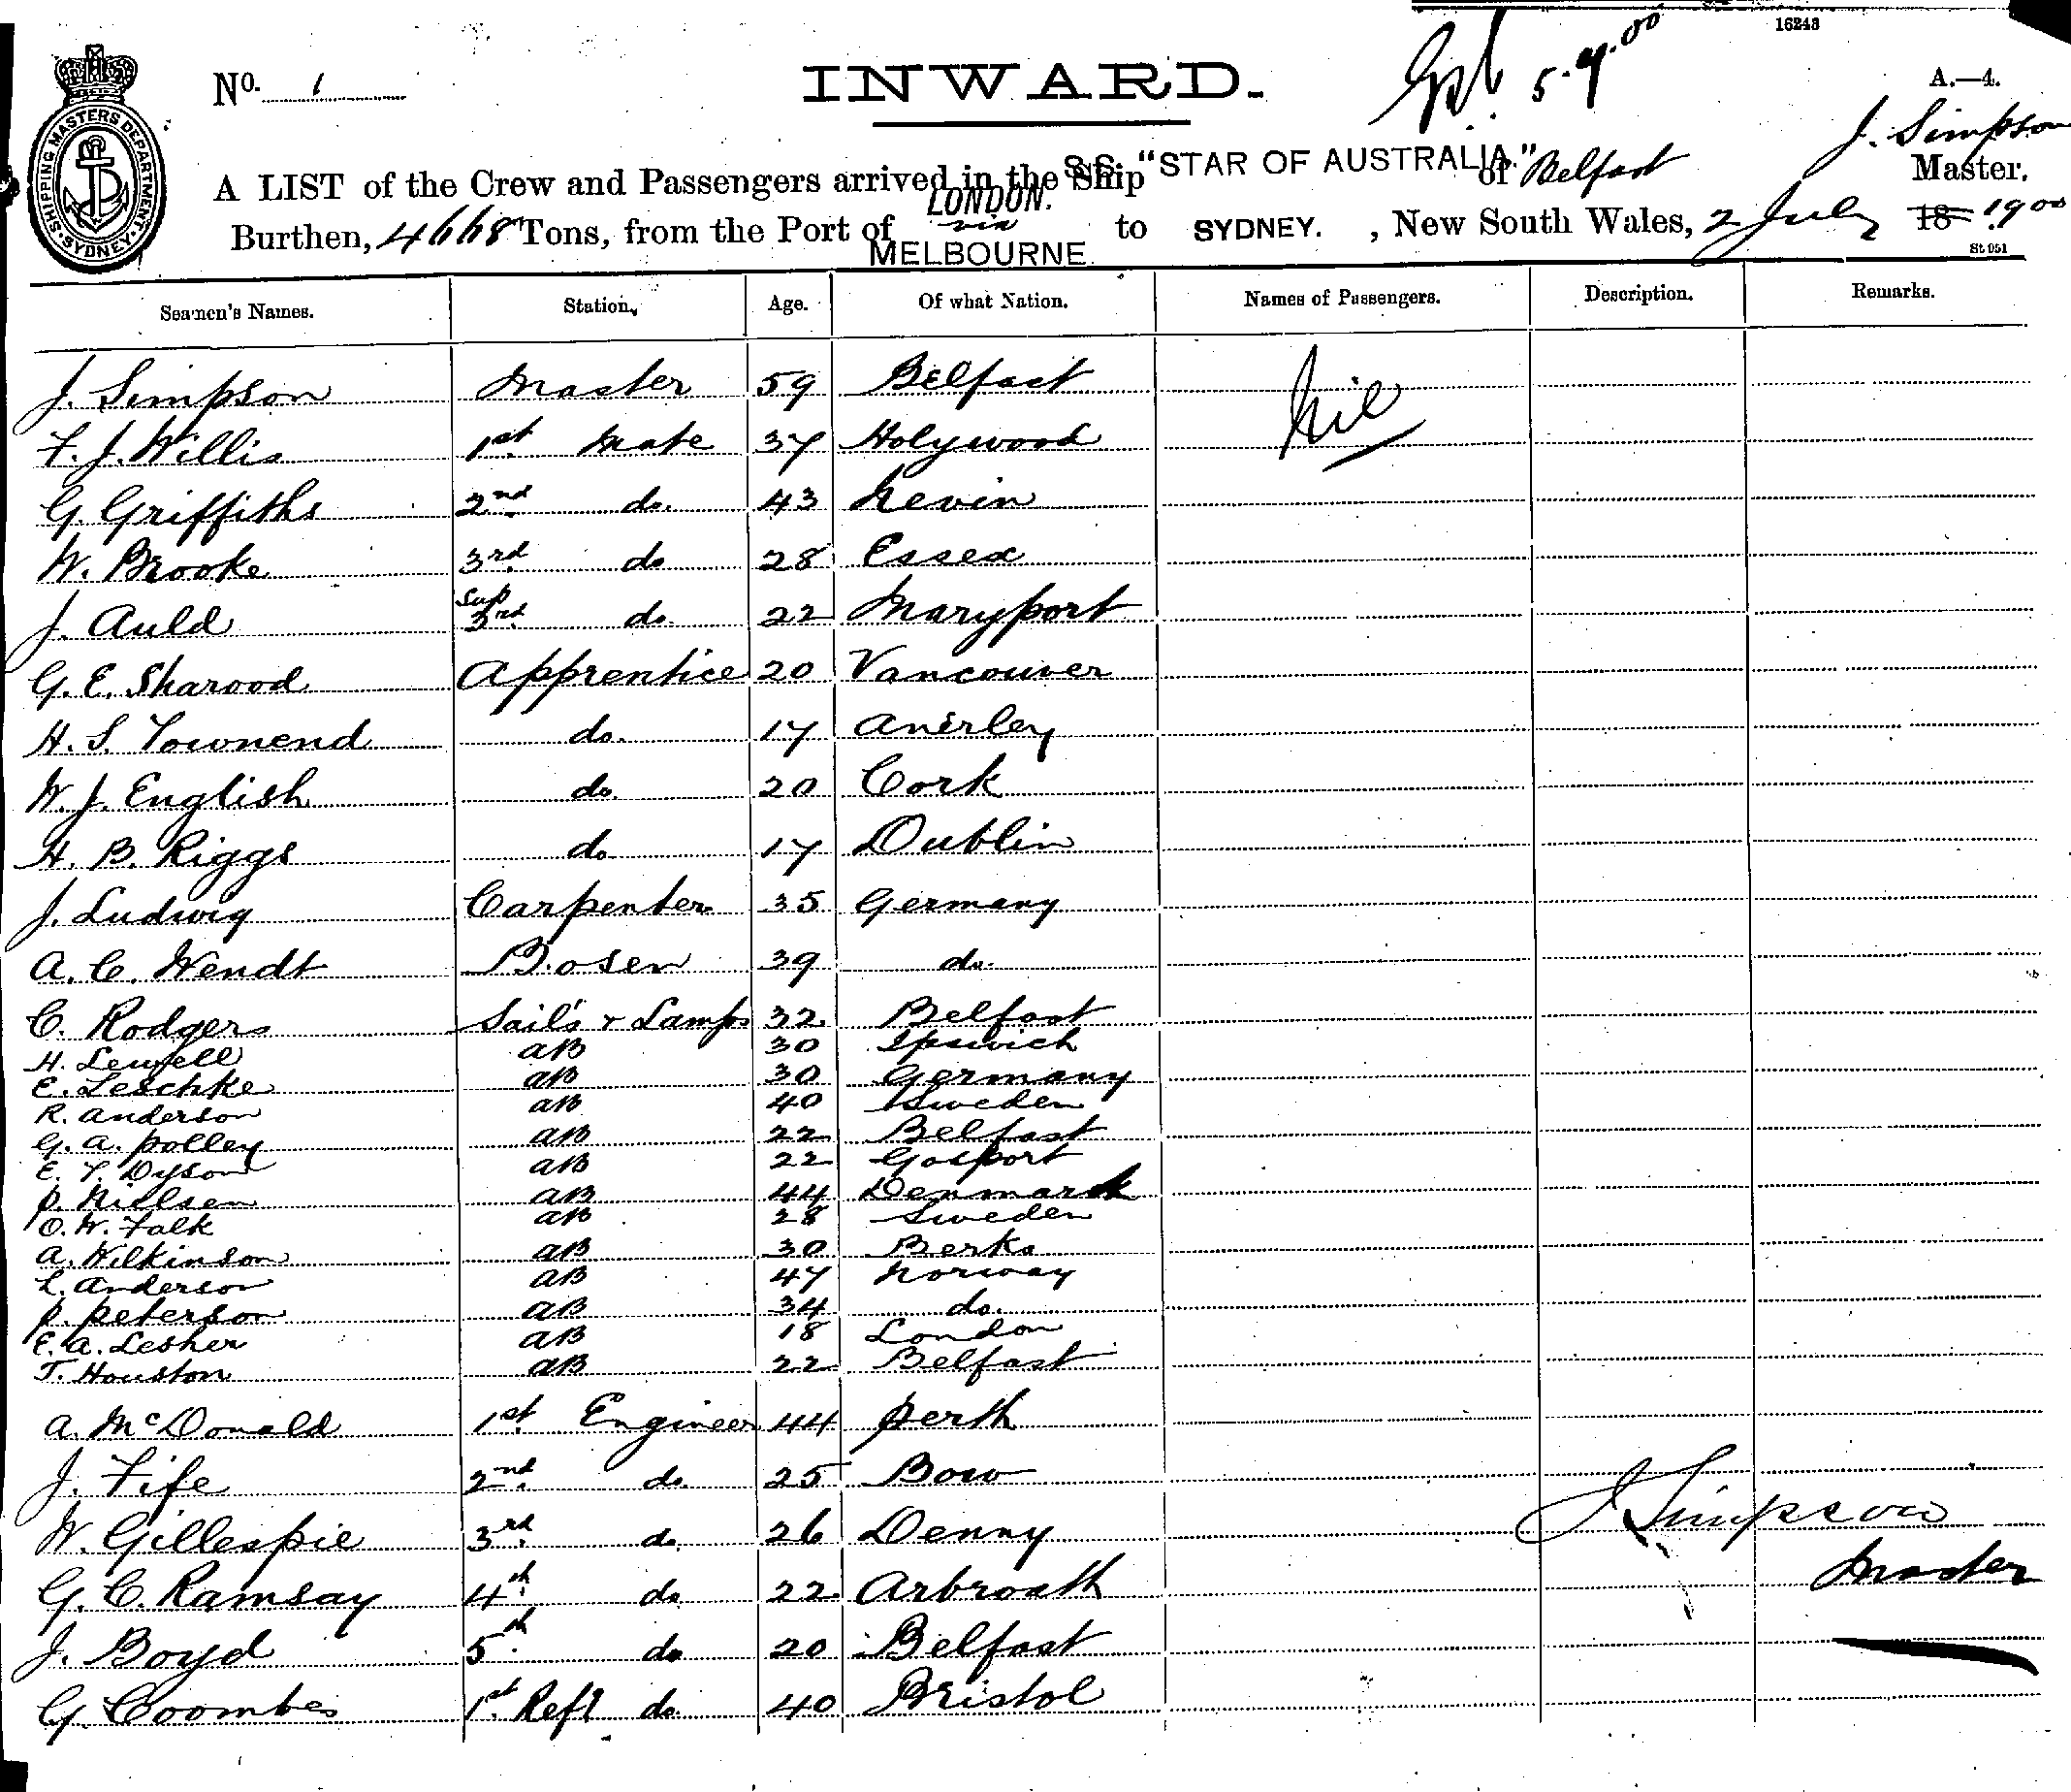 16243
No. 1
INWARD.
5.7.00
A.—4.
SHIPPING MASTERS DEPARTMENT · SYDNEY ·
J. Simpson
A LIST of the Crew and Passengers arrived in the Ship S.S. "STAR OF AUSTRALIA." of Belfast Master.
Burthen, 4668 Tons, from the Port of LONDON. via MELBOURNE to SYDNEY. , New South Wales, 2 July 18 1900
St 951
Seamen's Names. Station. Age. Of what Nation. Names of Passengers. Description. Remarks.
J. Simpson Master 59 Belfast Nil
F. J. Willis 1st. Mate 37 Holywood
G. Griffiths 2nd do. 43 Nevin
W. Brooke 3rd. do 28 Essex
J. Auld Sup 3rd. do. 22 Maryport
G. E. Sharood Apprentice 20 Vancouver
H. S. Townend do. 17 Anerley
W. J. English do. 20 Cork
H. B. Riggs do 17 Dublin
J. Ludwig Carpenter 35 Germany
A. C. Wendt Bosen 39 do.
C. Rodgers Sails & Lamps 32 Belfast
H. Lewell AB 30 Ipswich
E. Leschke AB 30 Germany
R. Anderson AB 40 Sweden
G. A. Polley AB 22 Belfast
E. T. Dyson AB 22 Gosport
P. Nielsen AB 44 Denmark
O. W. Falk AB 28 Sweden
A. Wilkinson AB 30 Berks
L. Anderson AB 47 Norway
P. Peterson AB 34 do.
E. A. Lesher AB 18 London
T. Houston AB 22 Belfast
A. McDonald 1st. Engineer 44 Perth
J. Fife 2nd. do. 25 Bow
W. Gillespie 3rd. do. 26 Denny J Simpson
G. C. Ramsay 4th. do. 22 Arbroath Master
J. Boyd 5th. do 20 Belfast
G. Coombes 1st. Refr do. 40 Bristol